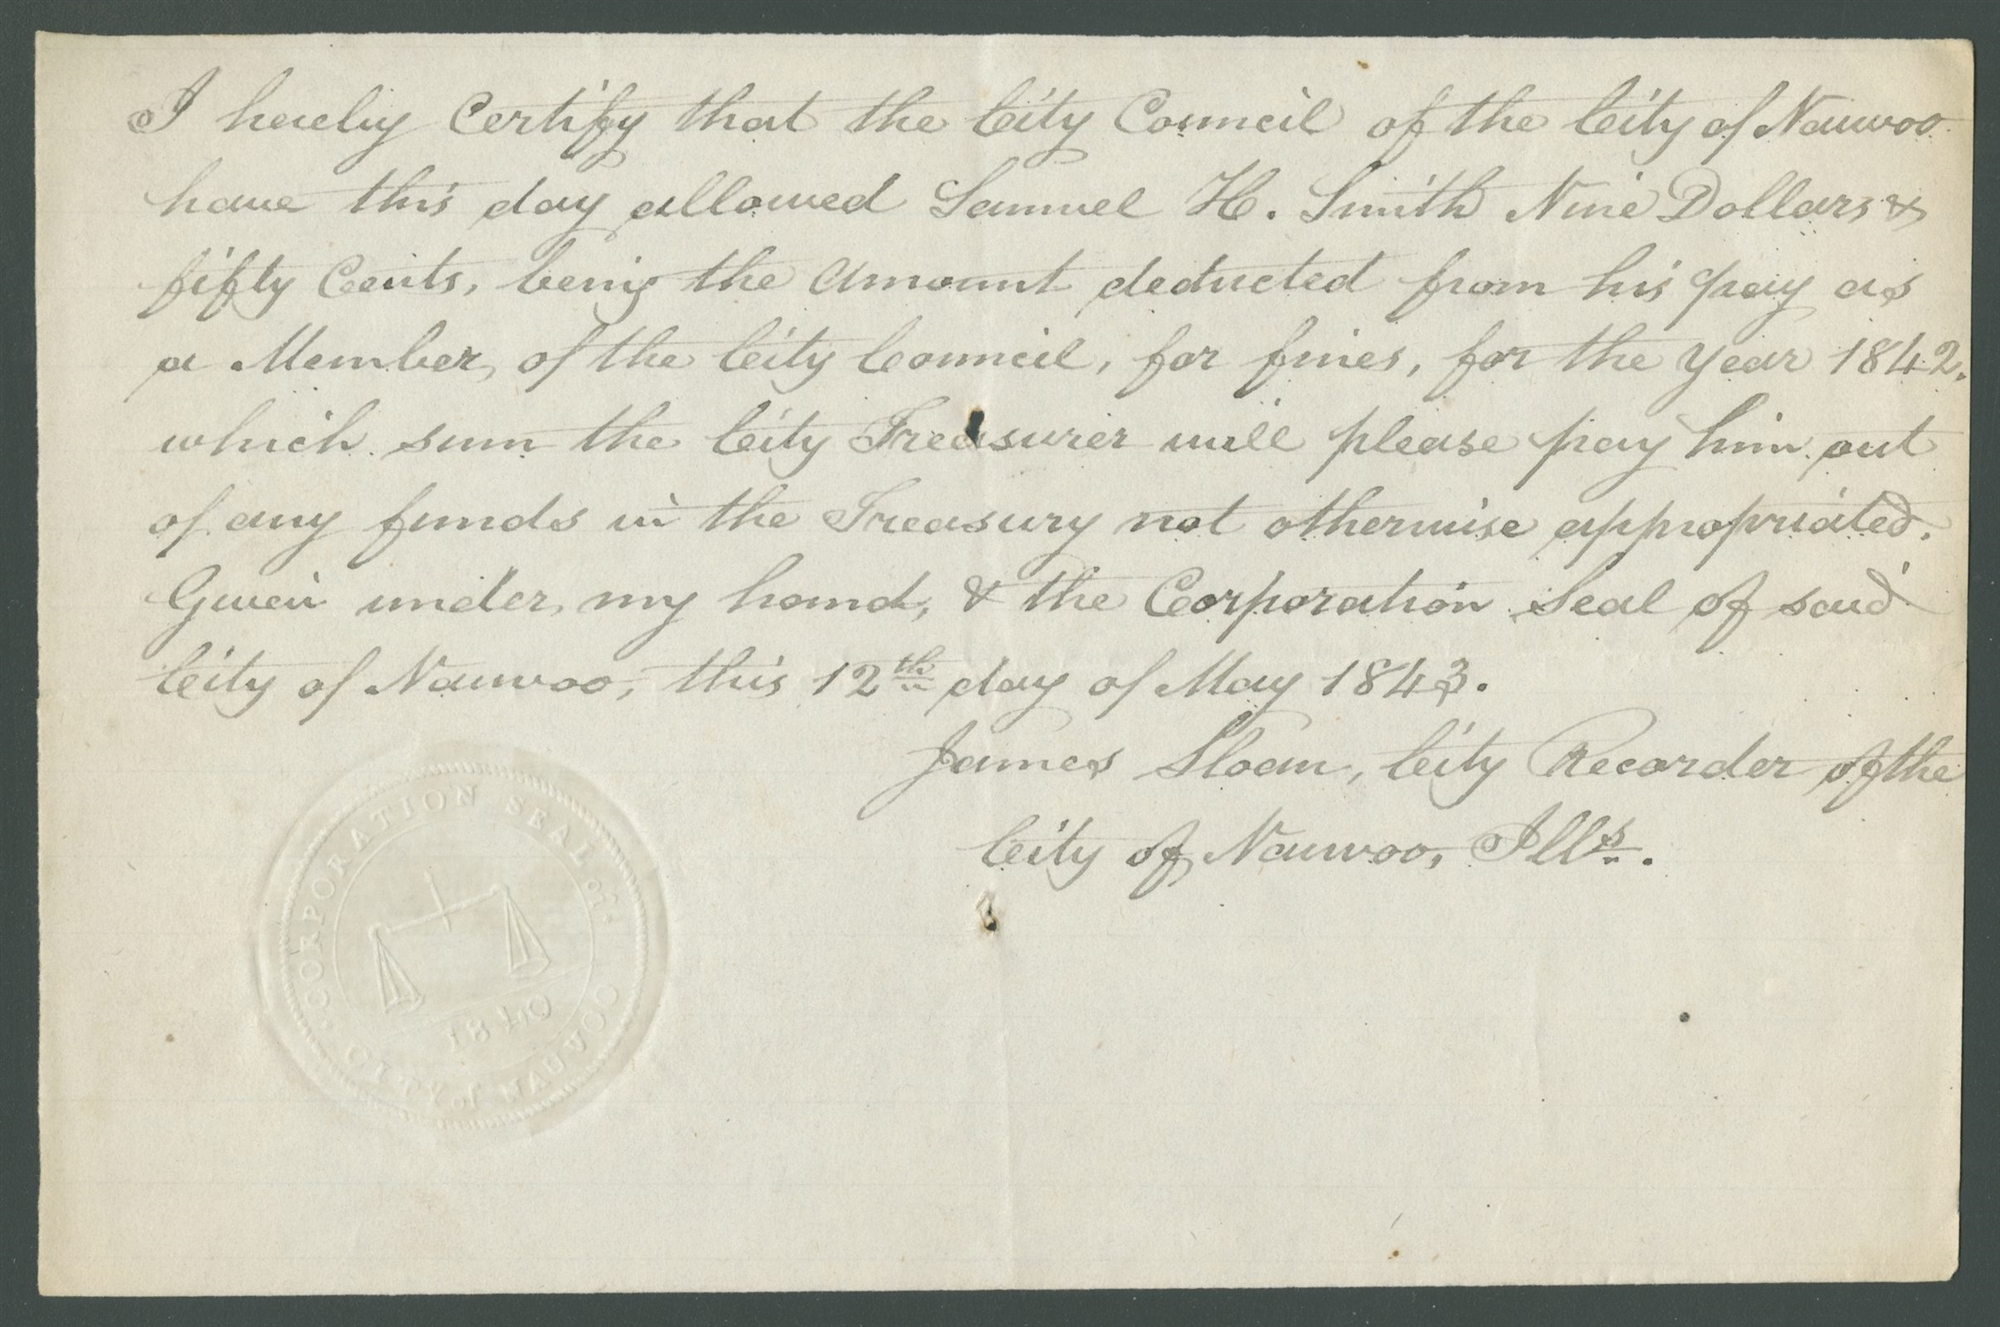 I hereby Certify that the City Council of the City of Nauvoo
have this day allowed Samuel H. Smith Nine Dollars &
fifty Cents, being the Amount deducted from his pay as
a Member, of the City Council, for fines, for the Year 1842.
which sum the City Treasurer will please pay him out
of any funds in the Treasury not otherwise appropriated.
Given under my hand, & the Corporation Seal of said
City of Nauvoo, this 12th day of May 1843.
James Sloan, City Recorder of the
City of Nauvoo, Ills.
CORPORATION SEAL of.
1840
CITY of NAUVOO